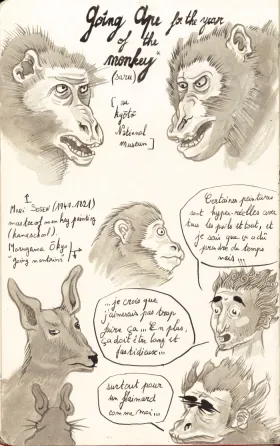 Going Ape for the year
of the
monkey"
(saru)
[ au
Kyōtō
National
Museum ]
Mori Sosen (1747-1821)
master of monkey painting
Maruyama Ōkyo
"going monkey"
Certaines peintures
sont hyper-réelles avec
tous les poils et tout, et
je sais que ça a dû
prendre du temps
mais !!!
... je crois que
j'aimerais pas trop
faire ça ... En plus,
ça doit être long et
fastidieux ...
surtout pour
un flemmard
comme moi ...